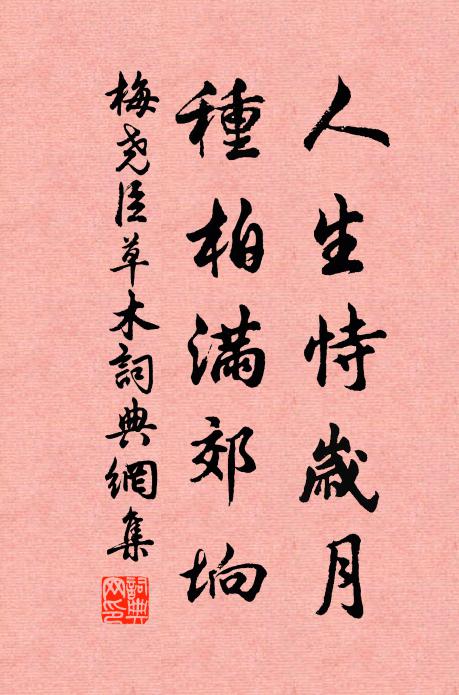 人生恃歲月
種柏滿郊坰
梅堯臣草木詞典網集
詞典网印